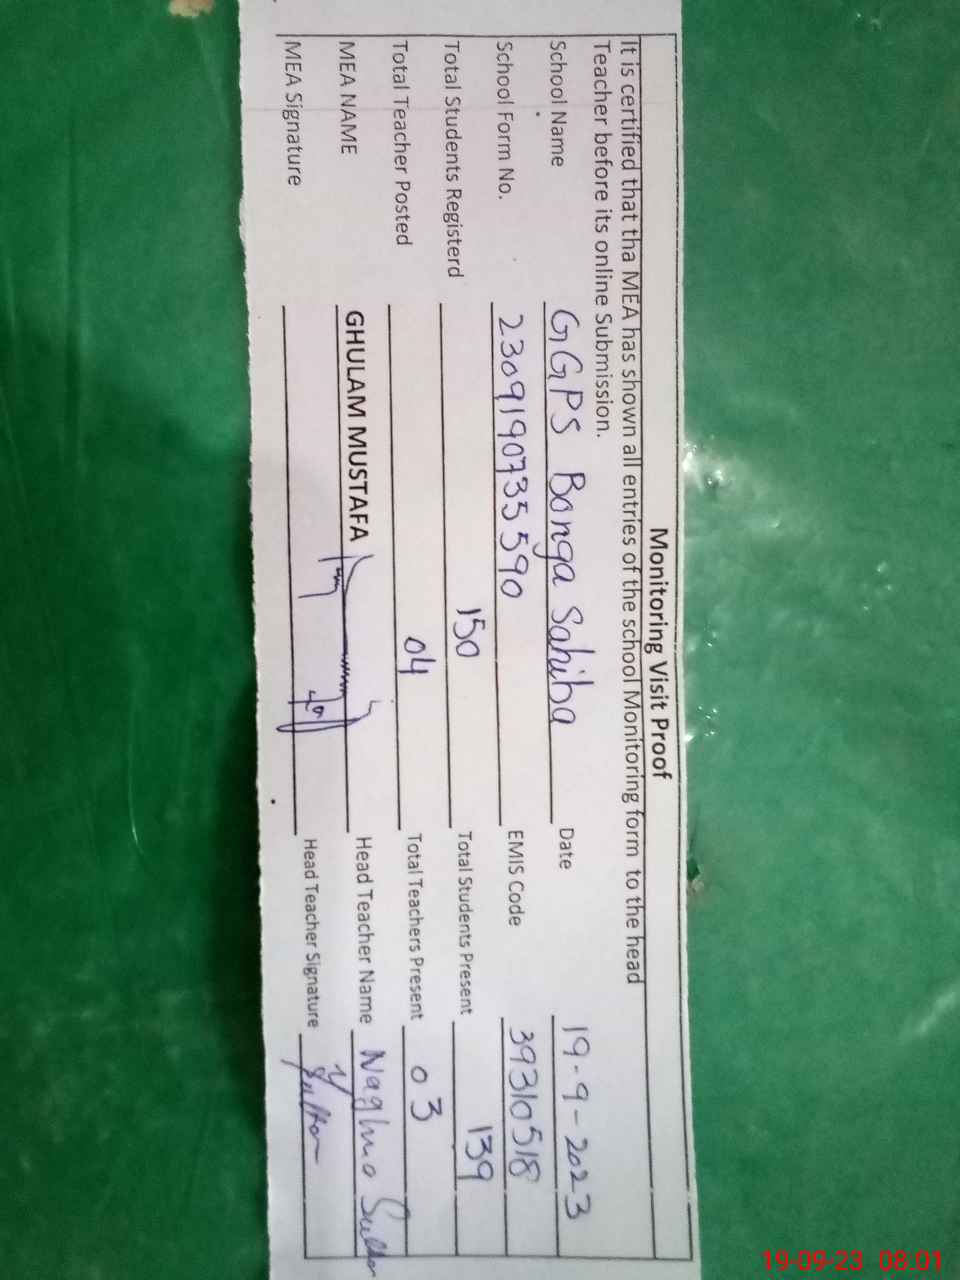 Monitoring Visit Proof
It is certified that tha MEA has shown all entries of the school Monitoring form to the head
Teacher before its online Submission.
School Name GGPS Bonga Sahiba Date 19-9-2023
School Form No. 2309190735590 EMIS Code 39310518
Total Students Registerd 150 Total Students Present 139
Total Teacher Posted 04 Total Teachers Present 03
MEA NAME GHULAM MUSTAFA Head Teacher Name Naghma Sultan
MEA Signature Head Teacher Signature
19-09-23 08:01